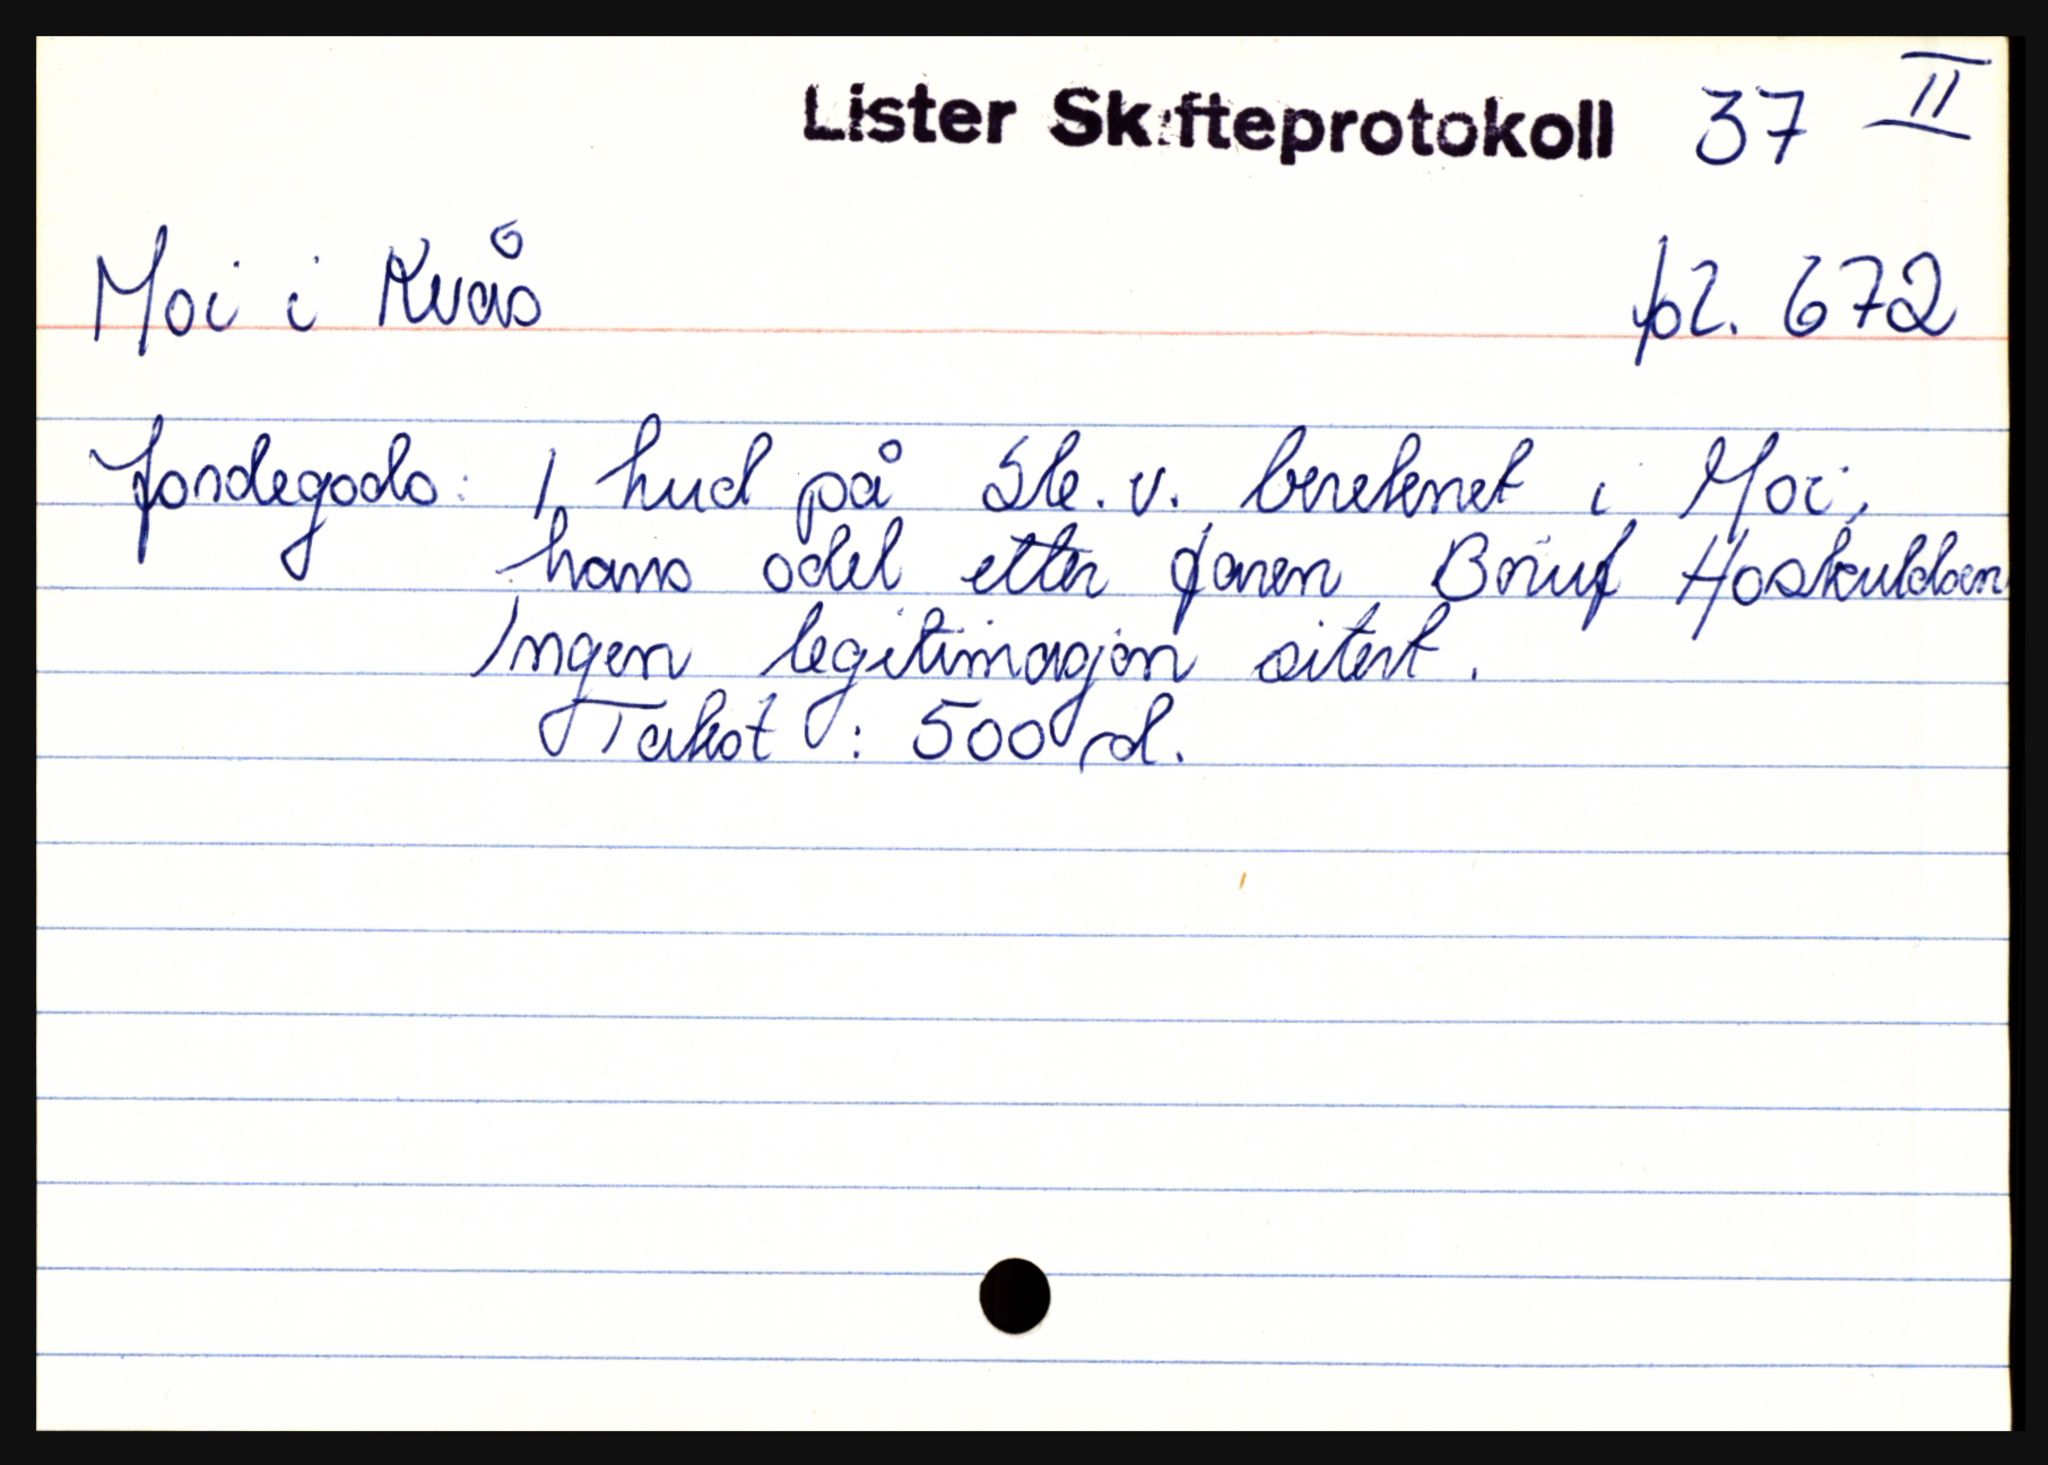 Lister Skifteprotokoll 37 II
Moi i Kvås fol. 672
Jordegods: 1 hud på Ste. v. bereknet i Moi,
hans odel etter faren Briuf Hoskuldsen
Ingen legitimasjon sitert.
Takst : 500 rd.